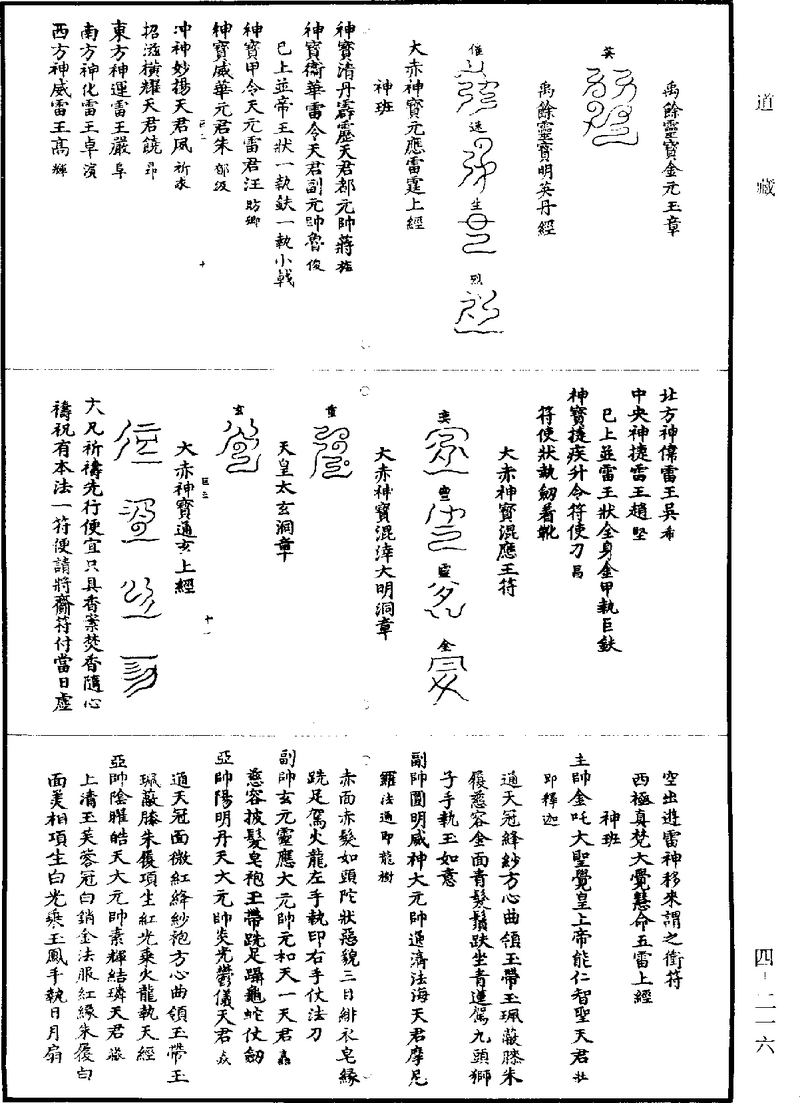 道藏
禹餘靈寶金元玉章
英
禹餘靈寶明英丹經
催
逃
生
烈
大赤神寶元應雷霆上經
神班
神寶清丹霹靂天君都元帥蔣
神寶衛華雷令天君副元帥魯俊
已上並帝王狀一執鈇一執小戟
神寶甲令天元雷君汪
神寶威華元君朱
冲神妙揚天君風
招滋橫耀天君饒
東方神運雷王嚴阜
南方神化雷王卓濱
西方神威雷王高輝
北方神偉雷王吳希
中央神捷雷王趙堅
已上並雷王狀全身金甲執巨鈇
神寶捷疾升令符使刀昌
符使狀執劒着靴
大赤神寶混應王符
靈
金
大赤神寶混滓大明洞章
重
天皇太玄洞章
玄
大赤神寶通玄上經
大凡祈禱先行便宜只具香案焚香隨心
禱祝有本法一符便請將齎符付當日虛
空出遊雷神移來謂之衝符
西極真梵大覺慧命五雷上經
神班
主帥金吒大聖覺皇上帝能仁智聖天君
即釋迦
通天冠絳紗方心曲領玉帶玉珮蔽膝朱
履慈容金面青髮鬚趺坐青蓮駕九頭獅
子手執玉如意
副帥圓明威神大元帥通濟法海天君摩尼
羅法通即龍樹
赤面赤髮如頭陀狀惡貌三目緋衣皂緣
跣足駕火龍左手執印右手仗法刀
副帥玄元靈應大元帥元和天一天君
慈容披髮皂袍玉帶跣足躡龜蛇仗劒
亞帥陽明丹天大元帥炎光鬱儀天君
通天冠面微紅絳紗袍方心曲領玉帶玉
珮蔽膝朱履項生紅光乘火龍執天經
亞帥陰曜皓天大元帥素輝結璘天君
上清玉芙蓉冠白銷金法服紅緣朱履白
面美相項生白光乘玉鳳手執日月扇
四－二一六